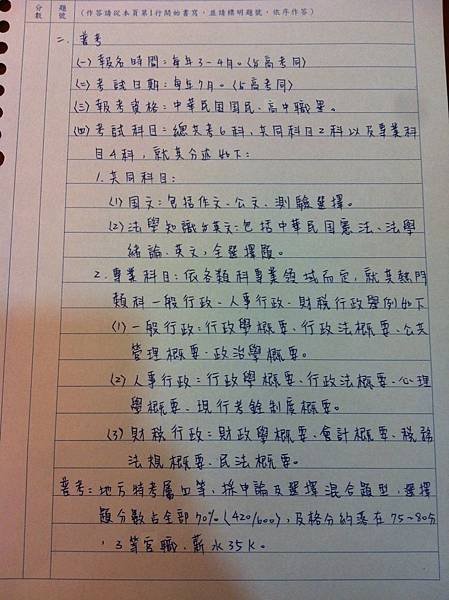 分數
題號
(作答請從本頁第1行開始書寫,並請標明題號,依序作答)
二、普考
(一)報名時間:每年3-4月。(與高考同)
(二)考試日期:每年7月。(與高考同)
(三)報考資格:中華民國國民、高中職畢。
(四)考試科目:總共考6科,共同科目2科以及專業科
目4科,就其分述如下:
1.共同科目:
(1)國文:包括作文、公文、測驗選擇。
(2)法學知識與英文:包括中華民國憲法、法學
緒論、英文,全選擇題。
2.專業科目:依各類科專業領域而定,就其熱門
類科一般行政、人事行政、財稅行政舉例如下
(1)一般行政:行政學概要、行政法概要、公共
管理概要、政治學概要。
(2)人事行政:行政學概要、行政法概要、心理
學概要、現行考銓制度概要。
(3)財稅行政:財政學概要、會計概要、稅務
法規概要、民法概要。
普考:地方特考屬四等,採申論及選擇混合題型,選擇
題分數占全部70%(420/600),及格分約落在75~80分
,3等官職、薪水35K。